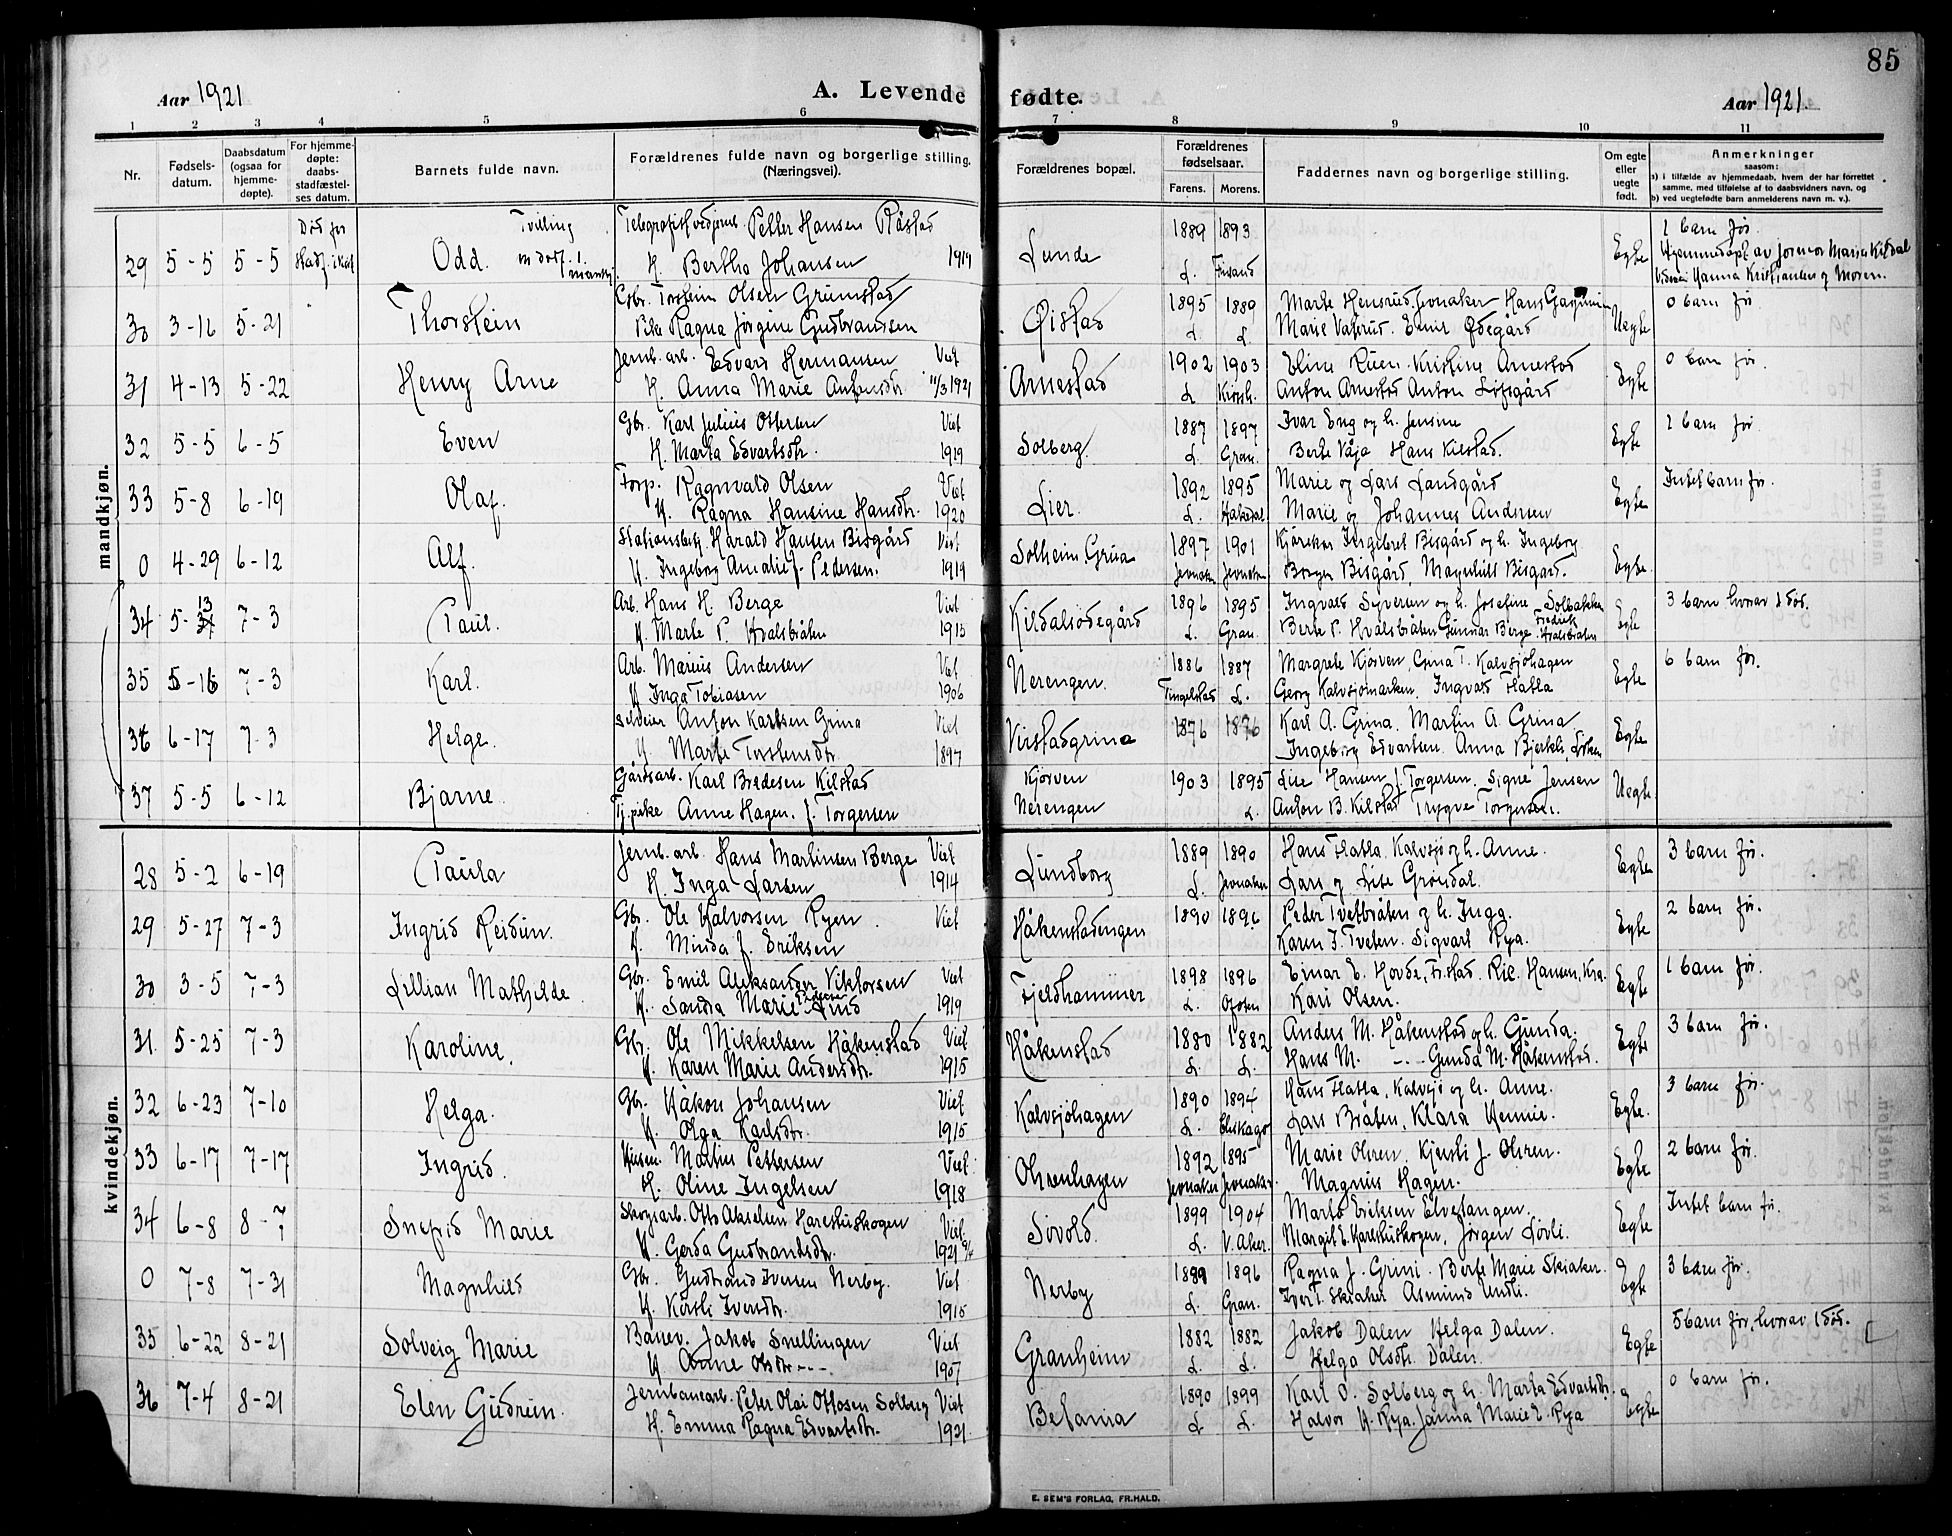 85
Aar 1921
A. Levende fødte.
Aar 1921.
1 2 3 4 5 6 7 8 9 10 11
Nr.
Fødsels-
datum.
Daabsdatum
(ogsaa for
hjemme-
døpte).
For hjemme-
døpte:
daabs-
stadfæstel-
ses datum.
Barnets fulde navn.
Forældrenes fulde navn og borgerlige stilling.
(Næringsvei).
Forældrenes bopæl.
Forældrenes
fødselsaar.
Farens. Morens.
Faddernes navn og borgerlige stilling.
Om egte
eller
uegte
født.
Anmerkninger
saasom:
a) i tilfælde av hjemmedaab, hvem der har forrettet
samme, med tilføielse af to daabsvidners navn, og
b) ved uegtefødte barn anmelderens navn m. v.).
mandkjøn.
Død før Tvilling Petter Hansen Råstad 1889 1893 1 barn før.
29 5-5 5-5 Odd. H. Bertha Johansen 1919 Lunde L. Egte Hjemmedøpt av formor Marie Kildal
Hanna Kristiansen og Moren.
Gbr. Torstein Olsen Grimstad 1895 1889 Marte Hensrud, Jevnaker 0 barn før.
30 3-16 5-21 Thorstein Pike Ragna Jørgine Gudbrandsen Øistad L. L. Marie Vaterud. Emil Ødegård Uegte
Jernb. arb. Edvard Hermansen Viet 1902 1903 Eline Rüen. Kristine Arnestad 0 barn før.
31 4-13 5-22 Henry Arne H. Anna Marie 11/3 1921 Arnestad L. Anton Arnestad Anton Egte
Gbr. Karl Julius Ottersen Viet 1887 1897 Ivar Eng og h. Jensine 1 barn før.
32 5-5 6-5 Even H. Marta Edvartsdtr. 1919 Solberg. L. Gran. Berte Våja Hans Kilstad. Egte
Forp. Ragnvald Olsen Viet 1892 1895 Marie og Lars Landgård Intet barn før.
33 5-8 6-19 Olaf. H. Ragna Hansine Hansdtr. 1920 Lier. L. Hakedal Marie og Johannes Andersen Egte
Stationsbetj. Harald Hansen Bisgård Viet 1897 1901 Ingebret Bisgård og h. Ingeborg
0 4-29 6-12 Alf. H. Ingeborg Amalie f. Pedersen. 1919 Solheim, Grua Jevnaker Jevnaker Borger Bisgård, Magnhild Bisgård. Egte.
Arb. Hans H. Berge Viet 1896 1895 Ingvald Syversen og h. Josefine Solbakken 3 barn hvorav 1 død.
34 5-13 7-3 Paul. H. Marte P. Hvalsbråten 1915 Kildalsødegård L. Gran. Berte P. Hvalsbråten Gunnar Berge Fredrik Hvalsbråten Egte
Arb. Marius Andersen Viet 1886 1887 Margrete Kjørven, Gina T. Kalvsjøhagen 6 barn før.
35 5-16 7-3 Karl. H. Inga Tobiasen 1906 Nerengen. Tingelstad L. Georg Kalvsjømarken, Ingvald Flatla Egte
Selveier Anton Karlsen Grina Viet 1876 1876 Karl A. Grina. Martin A. Grina
36 6-17 7-3 Helge. H. Marte Torstensdtr. 1897 Virstadgrina Ingeborg Edvartsen. Anna Bjerkli, Egte
Gårdsarb. Karl Bredesen Kilstad Kjørven 1903 1895 Lise Hansen f. Torgersen. Signe Jensen
37 5-5 6-12 Bjarne. Tj. pike Anne Hagen. f. Torgersen Nerengen L. Anton B. Kilstad Trygve Torgersen. Uegte.
kvindekjøn.
Jernb. arb. Hans Martinsen Berge Viet 1889 1890 Hans Flatla. Kalvsjø og h. Anne. 3 barn før.
28 5-2 6-19 Paula H. Inga Larsen 1914 Lundborg L. Jevnaker Lars og Lise Grøndal. Egte
Gbr. Ole Halvorsen Ryen Viet 1890 1896 Peder Tveitbråten og h. Inga. 2 barn før.
29 5-27 7-3 Ingrid Reidun. H. Minda f. Eriksen Håkenstadengen Karen J. Tveten. Sigvart Rya. Egte
Gbr. Emil Aleksander Viktorsen Viet 1898 1896 Ejnar E. Hovde, Hansen, Kra. 1 barn før.
30 3-5 7-3 Lillian Mathilde H. Sanda Marie Lund 1919 Fjeldhammer L. Ofoten Kari Olsen. Egte
Gbr. Ole Mikkelsen Håkenstad Viet 1880 1882 Anders M. Håkenstad og h. Gunda. 3 barn før.
31. 5-25 7-3 Karoline. H. Karen Marie Andersdtr. 1915 Håkenstad L. L. Hans M. -- Gunda M. Håkenstad. Egte
Gbr. Håkon Johansen Viet 1890 1894 Hans Flatla, Kalvsjø og h. Anne. 3 barn før.
32 6-23 7-10 Helga. H. Olga Karlsdtr. 1915 Kalvsjøhagen L. Lars Bråten, Klara Hennie. Egte.
Martin Pettersen Viet 1892 1895 Marie Ohren, Kjersti J. Ohren. 2 barn før.
33 6-17 7-17 Ingrid. H. Oline Ingelsen 1918 Ohrenhagen Jevnaker Jevnaker. Magnus Hagen. Egte
Skogsarb. Otto Akselsen Harestuskogen Viet 1899 1904 Marta Eriksen Elvetangen. Intet barn før.
34 6-8 8-7 Snefrid Marie H. Gerda Gudbrandsdtr. 1921 9/4 Sivold. L. V. Aker. Margit E. Jørgen Egte
Gbr. Gudbrand Iversen Nerby. Viet 1889 1896 Ragna J. Grini. Berte Marie Skiaker. 3 barn før.
0 7-8 7-31 Magnhild H. Kersti Iversdtr. 1915 Nerby L. Gran. Iver T. Skiaker Asmund Undli. Egte
Banev. Jakob Snellingen Viet 1882 1882 Jakob Dalen Helga Dalen. 5 barn før, hvorav 1 død.
35 6-22 8-21 Solveig Marie H. Anne Olsdtr. -- 1907 Granheim L. L. Helga Olsdtr. Dalen. Egte
Jernbanearb. Peter Olai Ottosen Solberg Viet 1890 1899 Karl O. Solberg og h. Marta Edvartsdtr. 0 barn før.
36 7-4 8-21 Elen Gudrun. H. Emma Ragna Edvartsdtr. 1921 Betania L. L. Halvor H. Rya. Janna Marie E. Rya Egte
E. SEM'S FORLAG, FR.HALD.